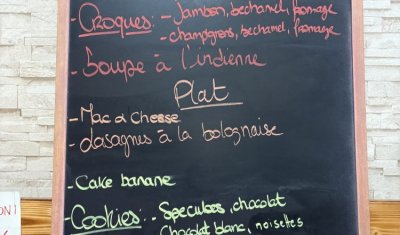 - Croques: - Jambon, bechamel, fromage
- champignons, bechamel, fromage
- Soupe à l'indienne
Plat
- Mac & Cheese
- dasagnes à la bolognaise
- Cake banane
- Cookies: - Speculoos, chocolat
Chocolat blanc, noisettes